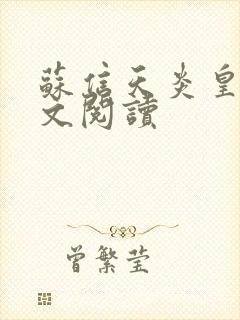 蘇信天炎皇
文閱讀
曾繁莹